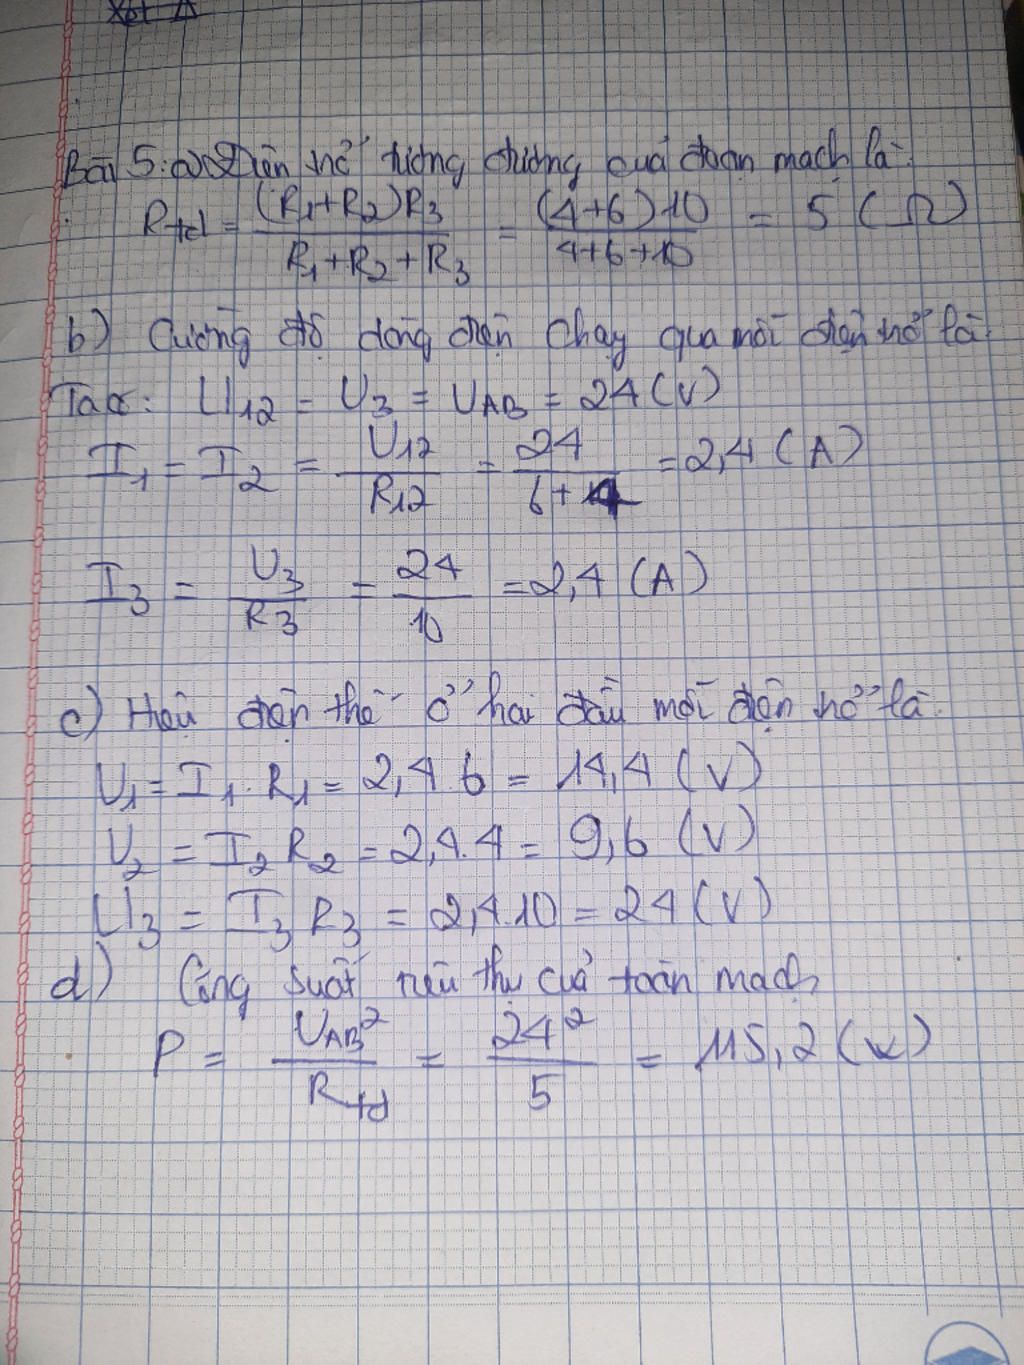 Bài 5: a) Điện trở tương đương của đoạn mạch là:
Rtđ = (R1+R2)R3 / R1+R2+R3 = (4+6)10 / 4+6+10 = 5 (Ω)
b) Cường độ dòng điện chạy qua mỗi điện trở là
Ta có: U12 = U3 = UAB = 24 (V)
I1 = I2 = U12 / R12 = 24 / 6+4 = 2,4 (A)
I3 = U3 / R3 = 24 / 10 = 2,4 (A)
c) Hiệu điện thế ở hai đầu mỗi điện trở là.
U1 = I1. R1 = 2,4.6 = 14,4 (V)
U2 = I2 R2 = 2,4.4 = 9,6 (V)
U3 = I3 R3 = 2,4.10 = 24 (V)
d) Công suất tiêu thụ của toàn mạch
P = UAB² / Rtđ = 24² / 5 = 115,2 (W)